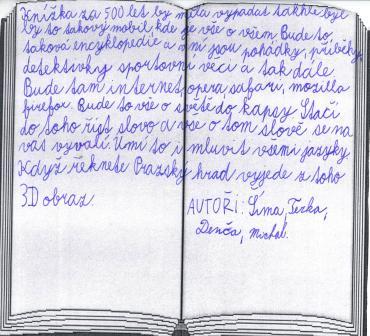 Knížka za 500 let by měla vypadat takhle byl
by to takový mobil, kde je vše o všem. Bude to,
taková encyklopedie a v ní jsou pohádky, příběhy,
detektivky sportovní věci a tak dále.
Bude tam internet, opera safari, mozilla
firefox. Bude to vše o světě do kapsy. Stačí
do toho říct slovo a vše o tom slově se na
vás vyvalí. Umí to i mluvit všemi jazyky.
Když řeknete Prazský hrad vyjede z toho
3D obraz.
AUTOŘI: Síma, Terka,
Denča, Michal.